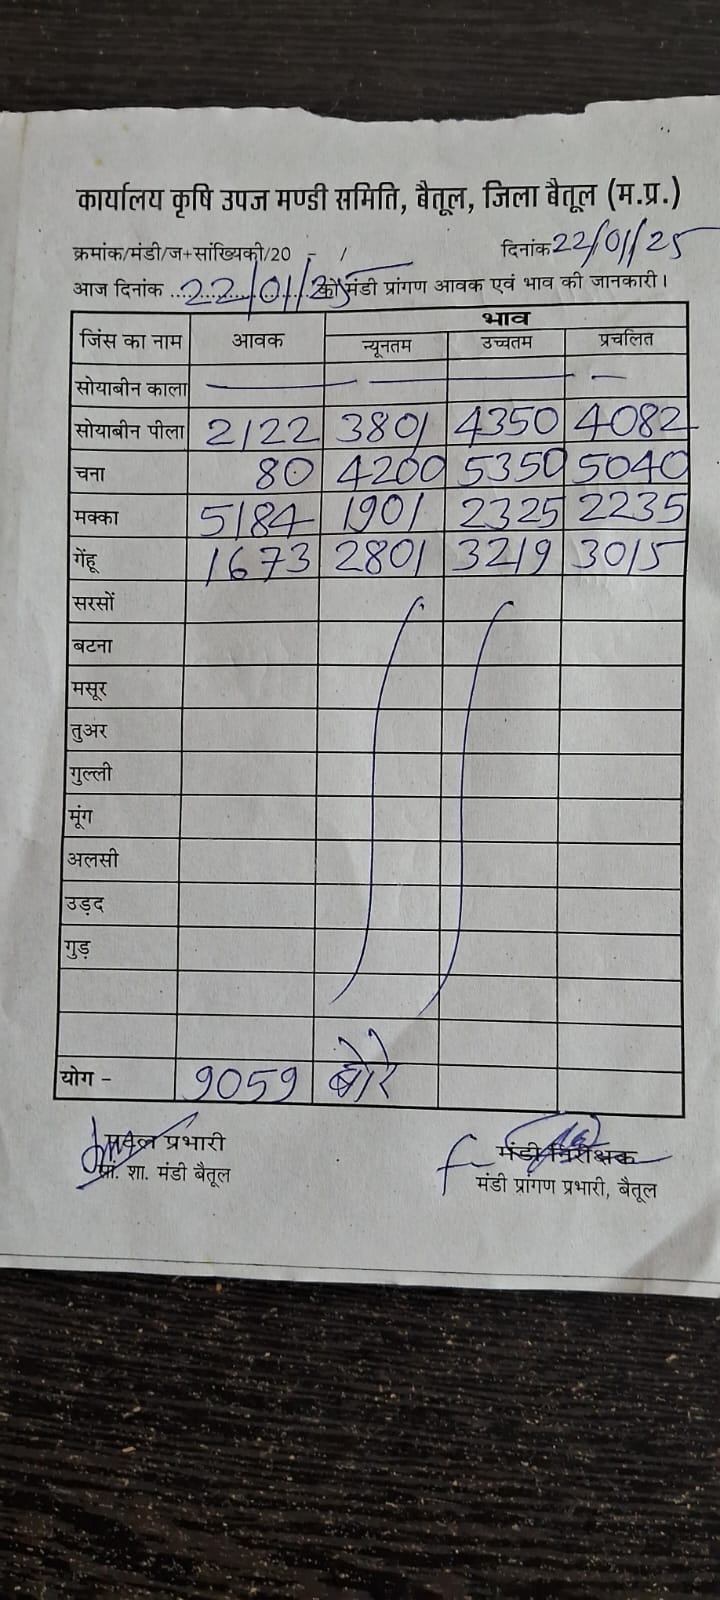 कार्यालय कृषि उपज मण्डी समिति, बैतूल, जिला बैतूल (म.प्र.)
क्रमांक/मंडी/ज+सांख्यिकी/20 - / दिनांक 22/01/25
आज दिनांक 22/01/25 को मंडी प्रांगण आवक एवं भाव की जानकारी।
जिंस का नाम आवक भाव
न्यूनतम उच्चतम प्रचलित
सोयाबीन काला — — — —
सोयाबीन पीला 2122 3801 4350 4082
चना 80 4200 5350 5040
मक्का 5184 1901 2325 2235
गेंहू 1673 2801 3219 3015
सरसों
बटना
मसूर
तुअर
गुल्ली
मूंग
अलसी
उड़द
गुड़
योग - 9059 बोरे
प्रभारी मंडी निरीक्षक
प्रां. शा. मंडी बैतूल मंडी प्रांगण प्रभारी, बैतूल